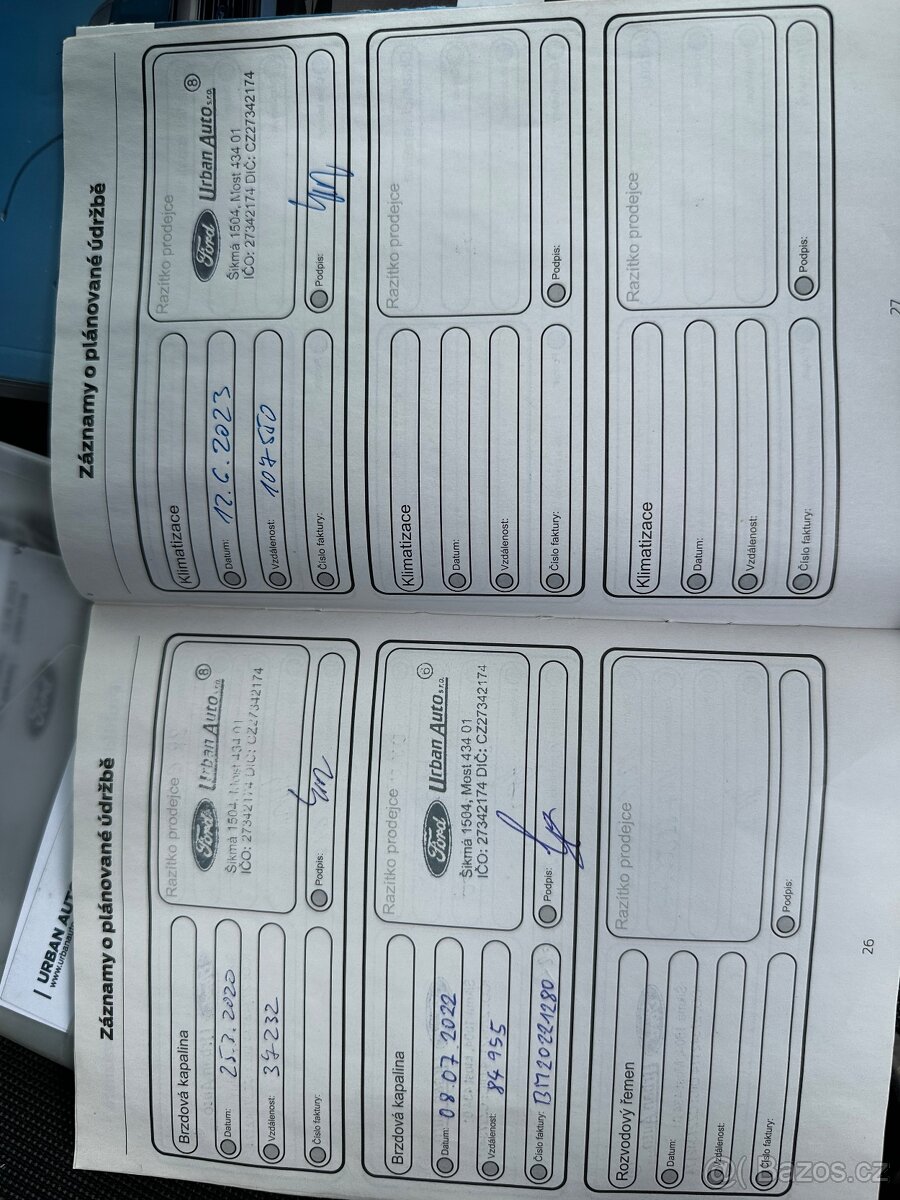 Záznamy o plánované údržbě
Brzdová kapalina
Datum: 25.7.2020
Vzdálenost: 37232
Číslo faktury:
Razítko prodejce
Ford Urban Auto s.r.o. 8
Šikmá 1504, Most 434 01
IČO: 27342174 DIČ: CZ27342174
Podpis:
Brzdová kapalina
Datum: 08.07 2022
Vzdálenost: 84955
Číslo faktury: BM20221280
Razítko prodejce
Ford Urban Auto s.r.o. 6
Šikmá 1504, Most 434 01
IČO: 27342174 DIČ: CZ27342174
Podpis:
Rozvodový řemen
Datum:
Vzdálenost:
Číslo faktury:
Razítko prodejce
Podpis:
26
Záznamy o plánované údržbě
Klimatizace
Datum: 12.6.2023
Vzdálenost: 107550
Číslo faktury:
Razítko prodejce
Ford Urban Auto s.r.o. 8
Šikmá 1504, Most 434 01
IČO: 27342174 DIČ: CZ27342174
Podpis:
Klimatizace
Datum:
Vzdálenost:
Číslo faktury:
Razítko prodejce
Podpis:
Klimatizace
Datum:
Vzdálenost:
Číslo faktury:
Razítko prodejce
Podpis:
27
URBAN AUTO
Bazos.cz